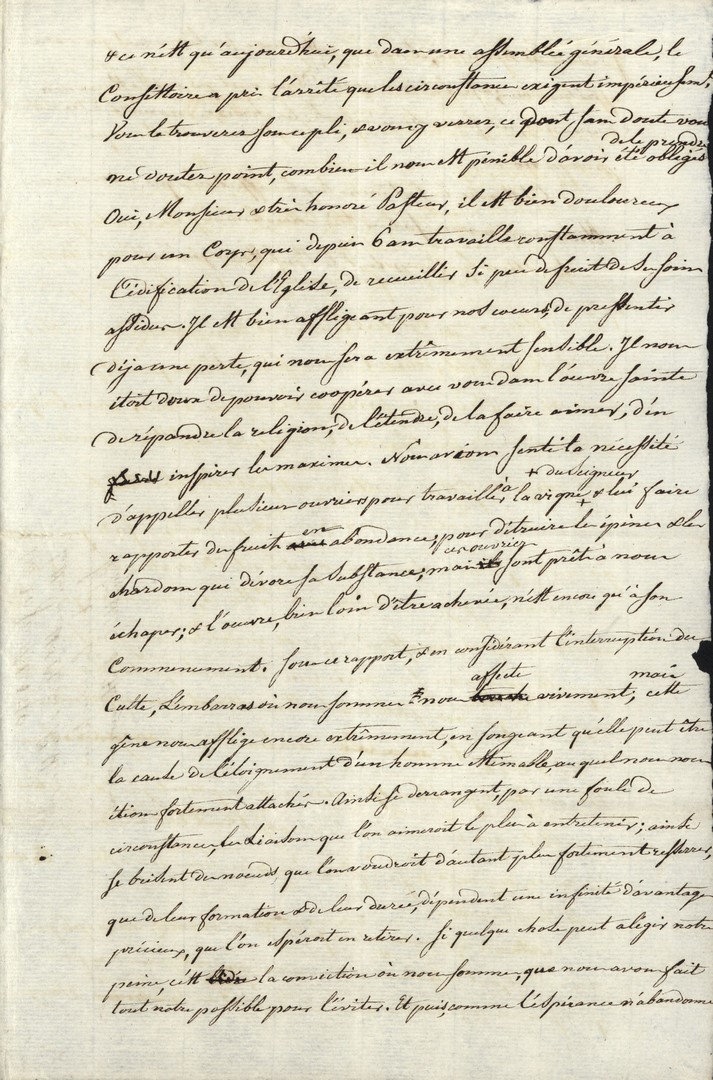 & ce n'est qu'aujourd'hui, que dans une assemblée générale, le
Consistoire a pris l'arrêté que les circonstances exigent impérieusemt.
Vous le trouverez sous ce pli, & vous y verrez, ce dont sans doute vous
de le prendre
ne doutez point, combien il nous est pénible d'avoir été obligés
Oui, Monsieur & très honoré Pasteur, il est bien douloureux
pour un Corps, qui depuis 6 ans travaille constamment à
l'édification de l'Eglise, de recueillir si peu de fruit de ses soins
assidus. Il est bien affligeant pour nos coeurs, de pressentir
déja une perte, qui nous sera extrêmement sensible. Il nous
étoit doux de pouvoir coopérer avec vous dans l'oeuvre sainte
de répandre la religion, de l'étendre, de la faire aimer, d'en
inspirer les maximes. Nous avions senti la nécessité
+ du Seigneur
d'appeller plusieurs ouvriers pour travailler à la vigne + & lui faire
rapporter du fruit en abondance, pour détruire les épines & les
ces ouvriers
chardons qui dévore sa substance; mais ils sont prêts à nous
échaper; & l'oeuvre, bien loin d'être achevée, n'est encore qu'à son
Commencement. Sous ce rapport, & en considérant l'interruption du
affecte mais
Culte, l'embarras où nous sommes nous vivement; cette
gêne nous afflige encore extrêmement, en songeant qu'elle peut être
la cause de l'éloignement d'un homme estimable, au quel nous nous
étions fortement attachés. Ainsi se derrangent, par une foule de
circonstances, les liaisons que l'on aimeroit le plus à entretenir; ainsi
se brisent des noeuds que l'on voudroit d'autant plus fortement resserrer,
que de leur formation & de leur durée, dépendent une infinité d'avantages
précieux, que l'on espéroit en retirer. Si quelque chose peut alégir notre
peine, c'est la conviction où nous sommes, que nous avons fait
tout notre possible pour l'éviter. Et puis, comme l'espérance n'abandonne